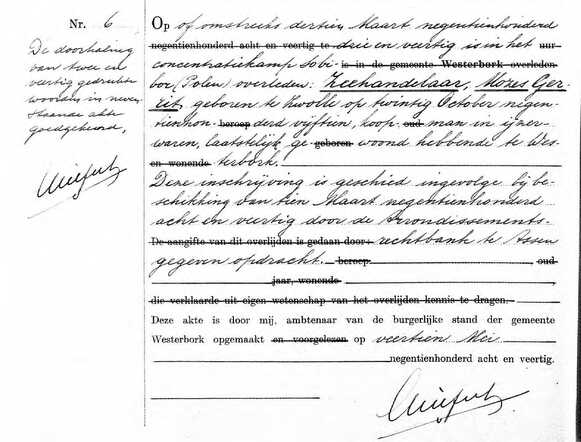 Nr. 6
De doorhaling
van twee en
veertig gedrukte
woorden in neven-
staande akte
goedgekeurd,
Op of omstreeks dertien Maart negentienhonderd
negentienhonderd acht en veertig te drie en veertig is in het uur
concentratiekamp Sobi- is in de gemeente Westerbork overleden
bor (Polen) overleden: Zeehandelaar, Mozes Ger-
rit, geboren te Zwolle op twintig October negen-
tienhon- beroep derd vijftien, koop- oud man in ijzer-
waren, laatstelijk ge- geboren woond hebbende te Wes-
en wonende terbork.
Deze inschrijving is geschied ingevolge bij be-
schikking van tien Maart negentienhonderd
acht en veertig door de Arrondissements-
De aangifte van dit overlijden is gedaan door: rechtbank te Assen
gegeven opdracht. beroep: oud
jaar, wonende
die verklaarde uit eigen wetenschap van het overlijden kennis te dragen.
Deze akte is door mij, ambtenaar van de burgerlijke stand der gemeente
Westerbork opgemaakt en voorgelezen op veertien Mei
negentienhonderd acht en veertig.